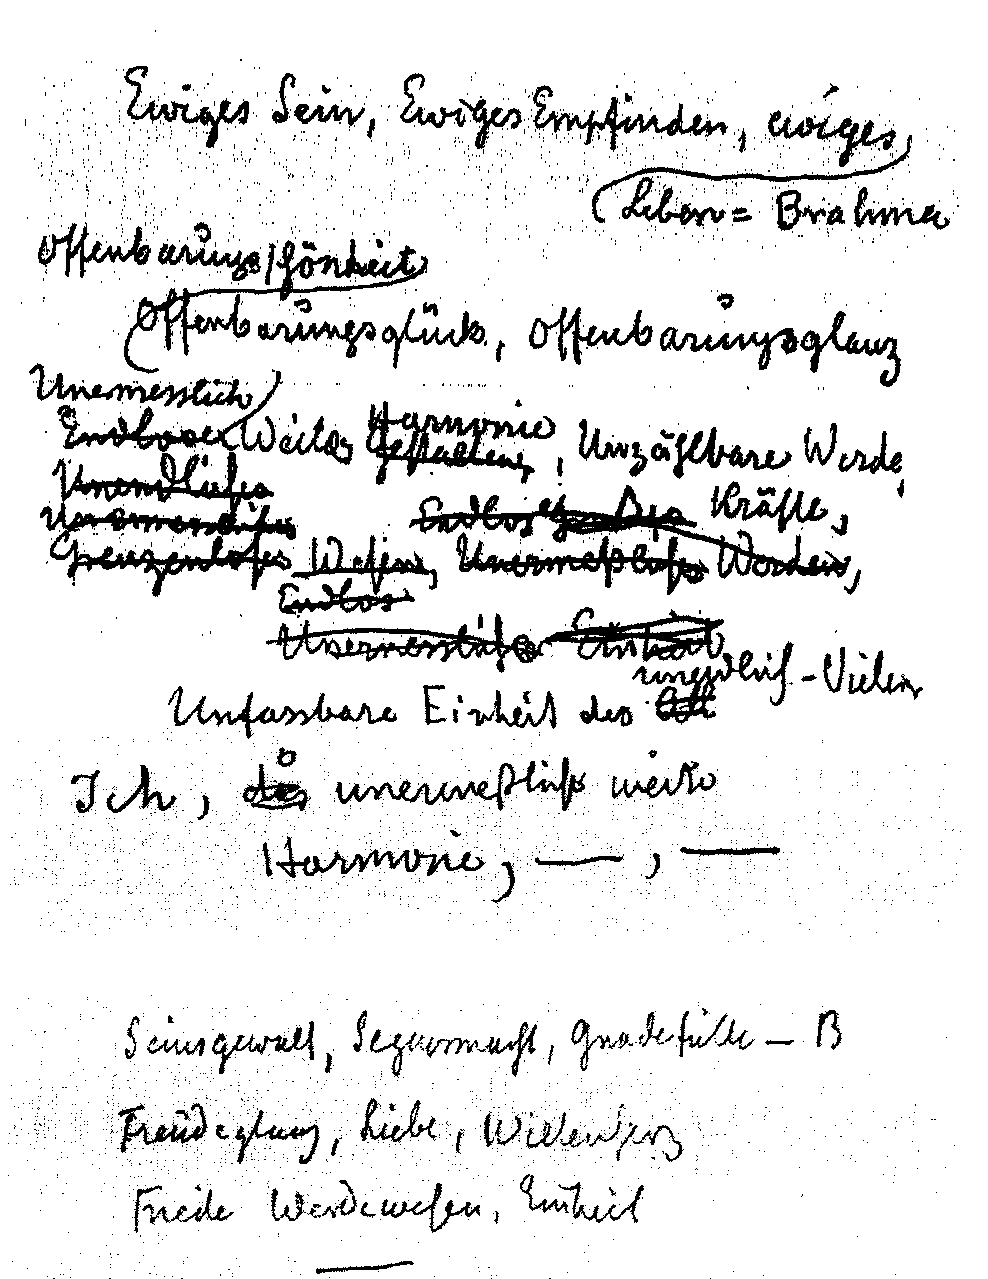 Ewiges Sein, Ewiges Empfinden, ewiges
Leben = Brahma
Offenbarungsschönheit
Offenbarungsglück, Offenbarungsglanz
Unermesslich
Endlose Weite, Harmonie, Unzählbare Werde
Gestalten,
Unendliches
Unermessliches Endlos Kräfte,
Grenzenloses Wesen, Unermeßliches Werden,
Endlos
Unermessliche Einheit
unendlich-Vielen
Unfassbare Einheit des All
Ich, des unermeßlich weite
Harmonie, — , —
Seinsgewalt, Segensmacht, Gnadefülle — B
Freudeglanz, Liebe,
Friede Werdewesen, Einheit